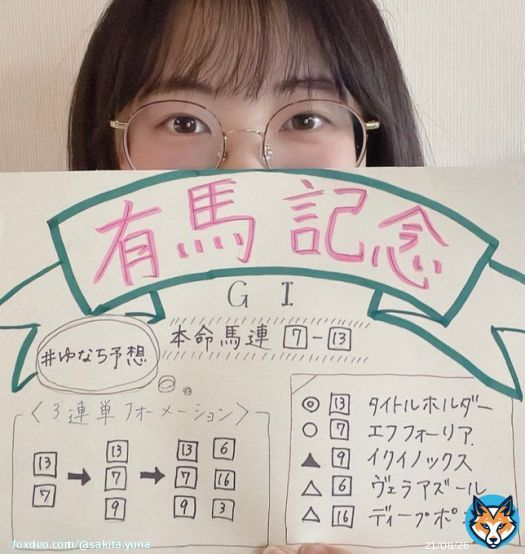 有馬記念
G I
#ゆなち予想
本命馬連 7-13
〈3連単フォーメーション〉
13 ➡ 13 ➡ 13 6
7 7 7 16
9 9 3
◎ 13 タイトルホルダー
○ 7 エフフォーリア
▲ 9 イクイノックス
△ 6 ヴェラアズール
△ 16 ディープボ
foxdeo.com/@sakita.yuna
21/08/26